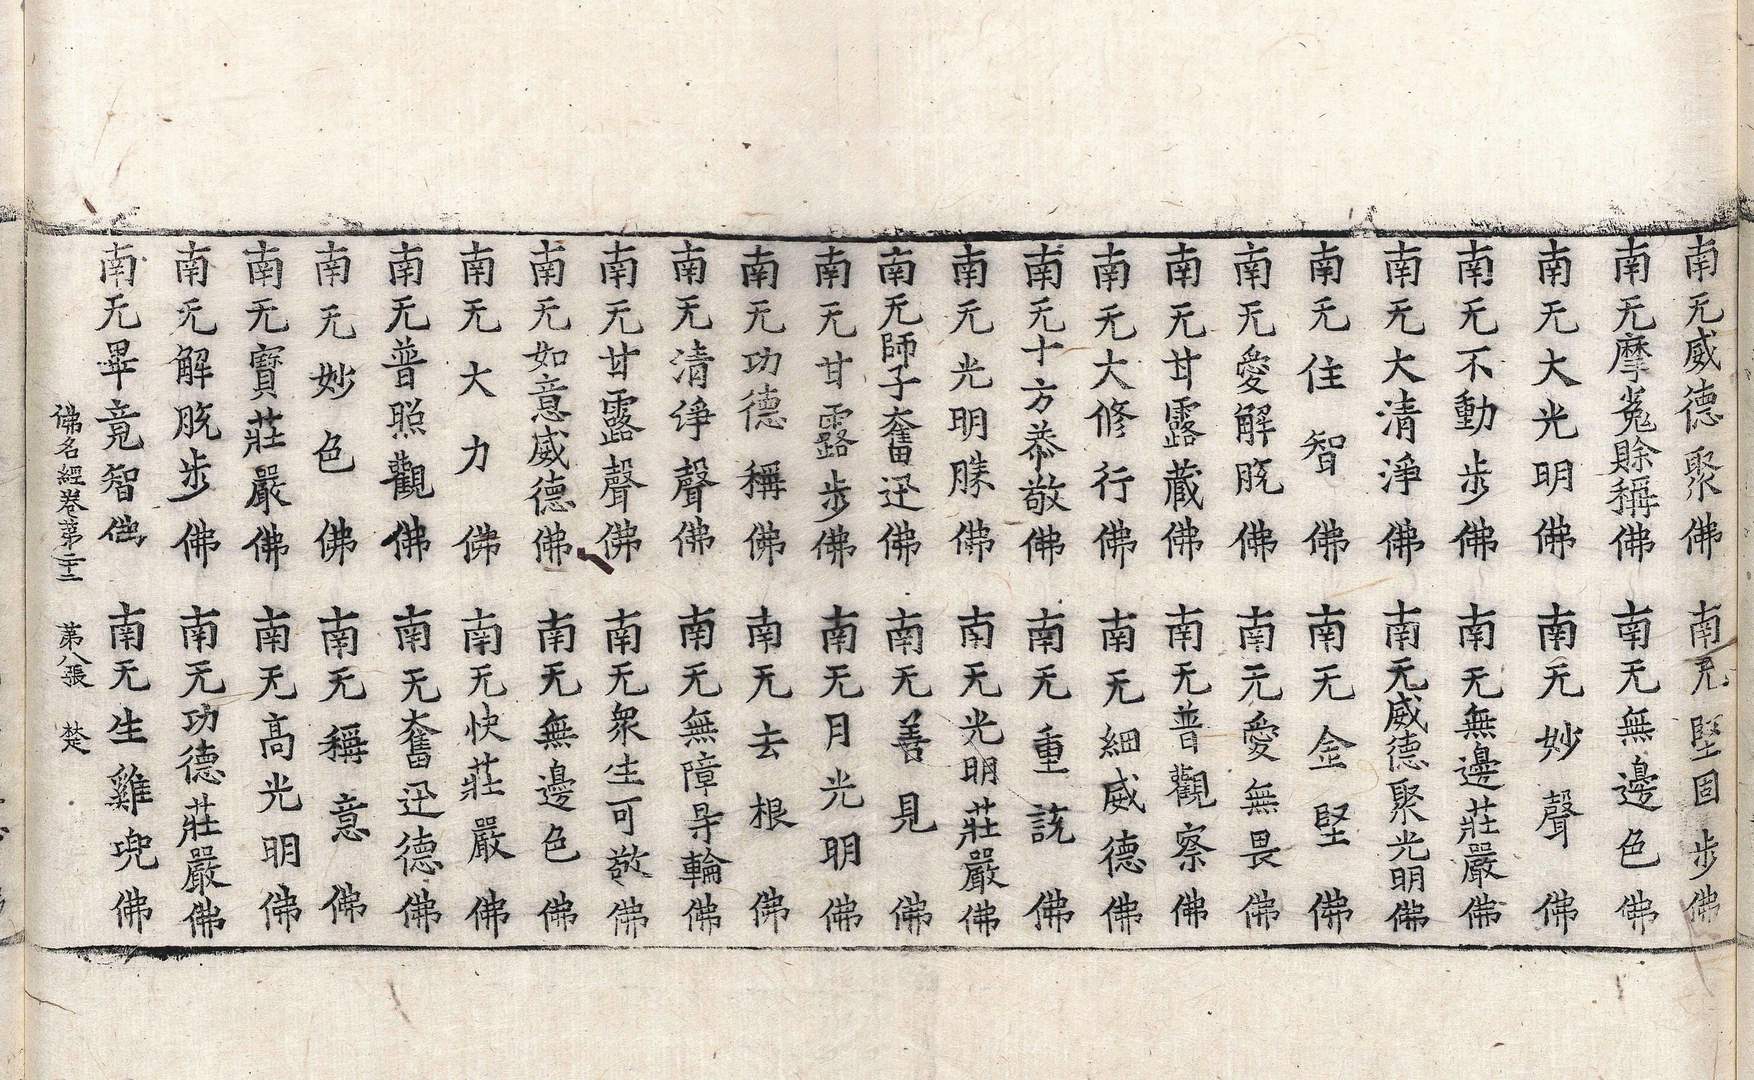 南无威德聚佛 南无堅固步佛
南无摩㝹賖稱佛 南无無邊色佛
南无大光明佛 南无妙聲佛
南无不動步佛 南无無邊莊嚴佛
南无大清淨佛 南无威德聚光明佛
南无住智佛 南无金堅佛
南无愛解脫佛 南无愛無畏佛
南无甘露藏佛 南无普觀察佛
南无大修行佛 南无細威德佛
南无十方恭敬佛 南无重說佛
南无光明勝佛 南无光明莊嚴佛
南无師子奮迅佛 南无善見佛
南无甘露步佛 南无月光明佛
南无功德稱佛 南无去根佛
南无清淨聲佛 南无無障㝵輪佛
南无甘露聲佛 南无衆生可敬佛
南无如意威德佛 南无無邊色佛
南无大力佛 南无快莊嚴佛
南无普照觀佛 南无奮迅德佛
南无妙色佛 南无稱意佛
南无寶莊嚴佛 南无高光明佛
南无解脫步佛 南无功德莊嚴佛
南无畢竟智佛 南无生雞兜佛
佛名經卷第二十二 第八張 楚